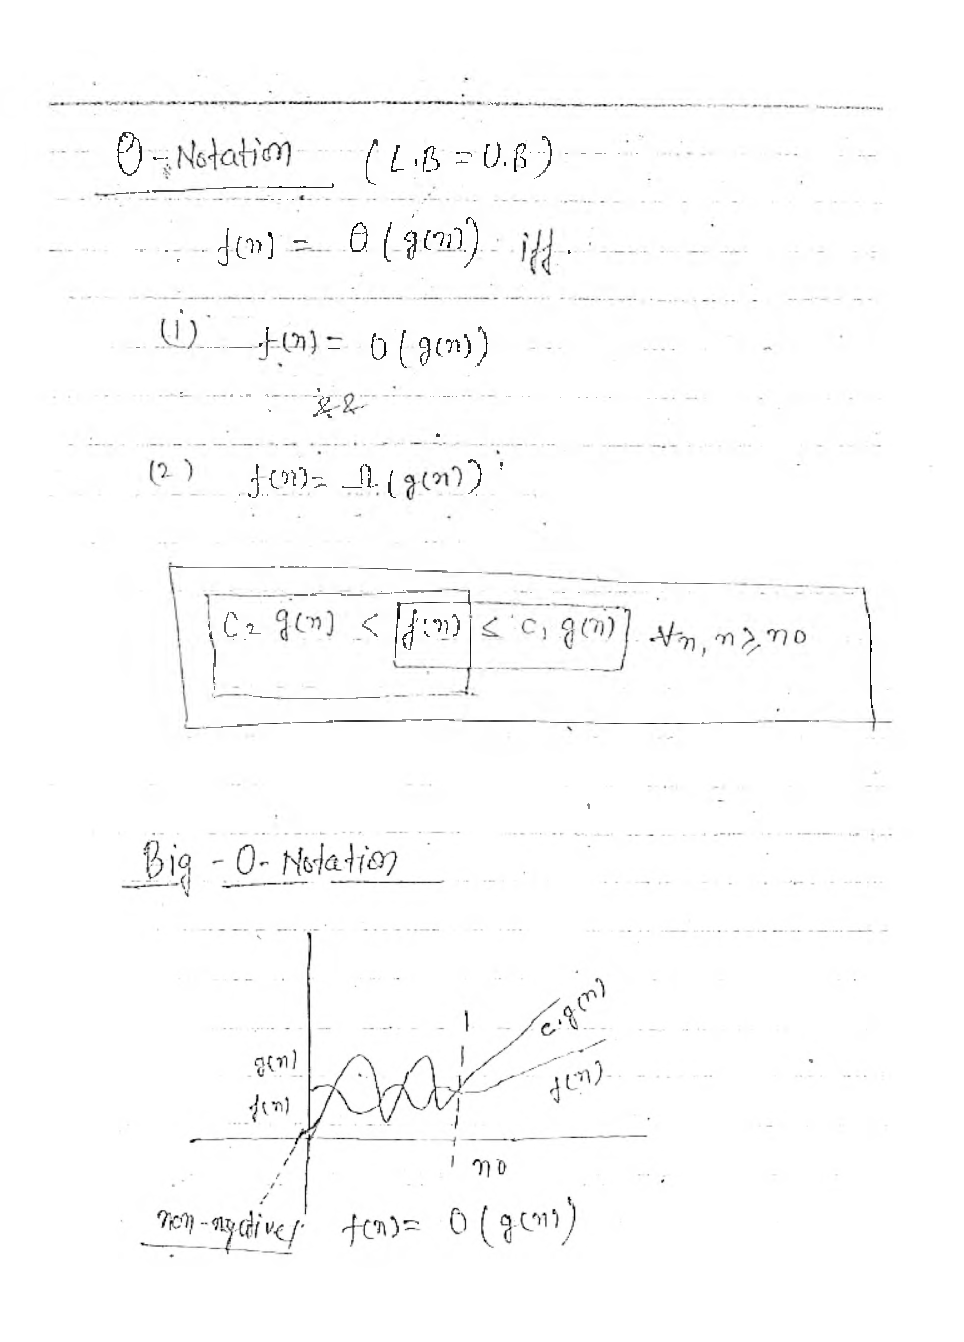 θ - Notation (L.B = U.B)
f(n) = θ(g(n)) iff.
(1) f(n) = O(g(n))
&&
(2) f(n) = Ω(g(n))
C2 g(n) < f(n) ≤ C1 g(n) ∀n, n ≥ n0
Big - O - Notation
c.g(n)
g(n)
f(n)
f(n)
n0
non-negative f(n) = O(g(n))